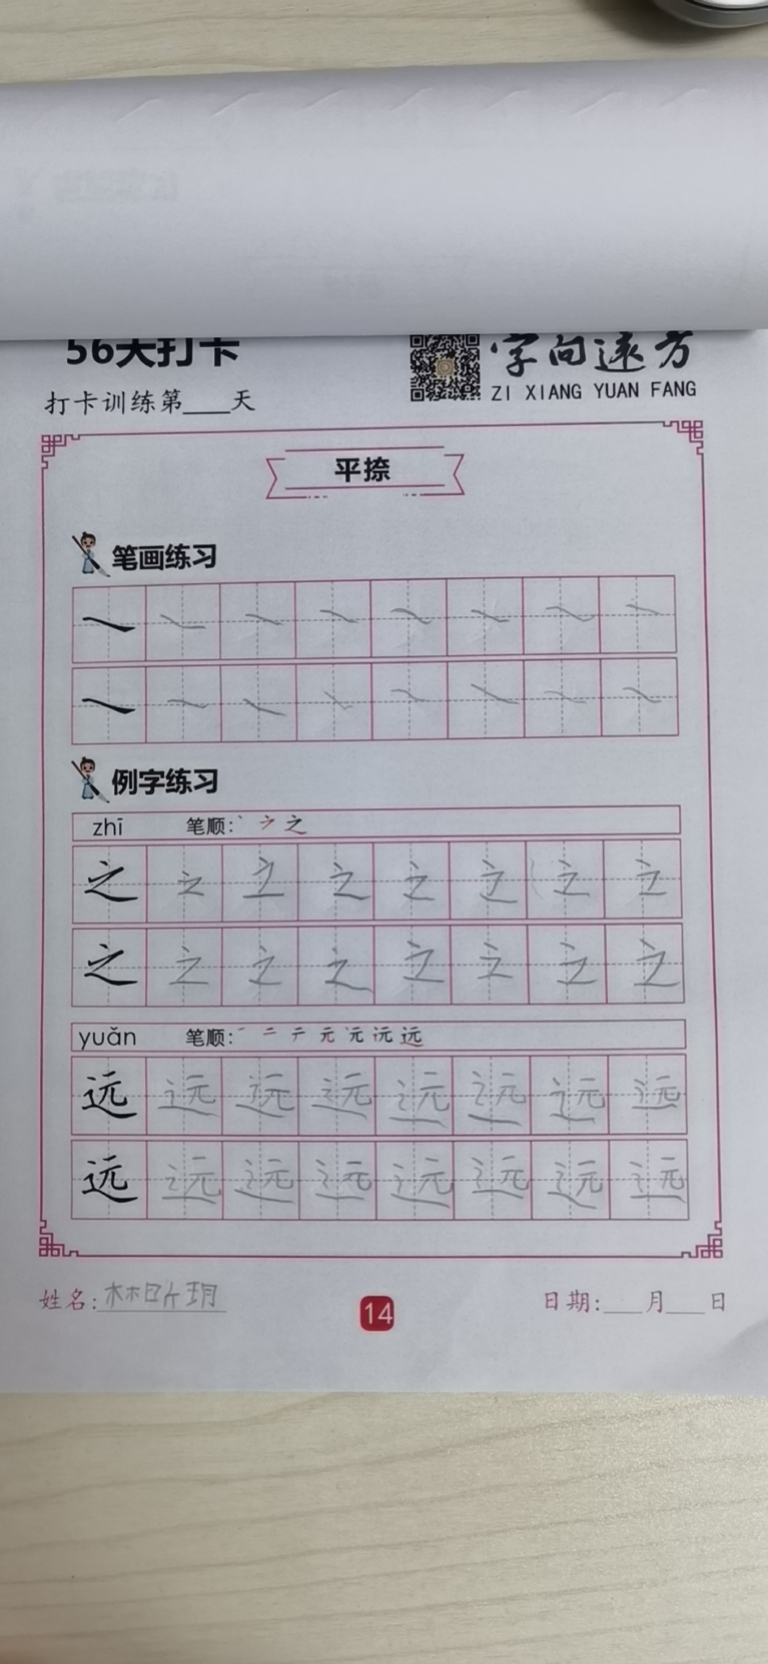 56天打卡
字向远方
ZI XIANG YUAN FANG
打卡训练第___天
平捺
笔画练习
例字练习
zhī 笔顺: 丶 ㇇ 之
之 之 之 之 之 之 之 之
之 之 之 之 之 之 之 之
yuǎn 笔顺: 一 二 テ 元 元 沅 远
远 远 远 远 远 远 远 远
远 远 远 远 远 远 远 远
姓名: 林昕玥
14
日期:___月___日